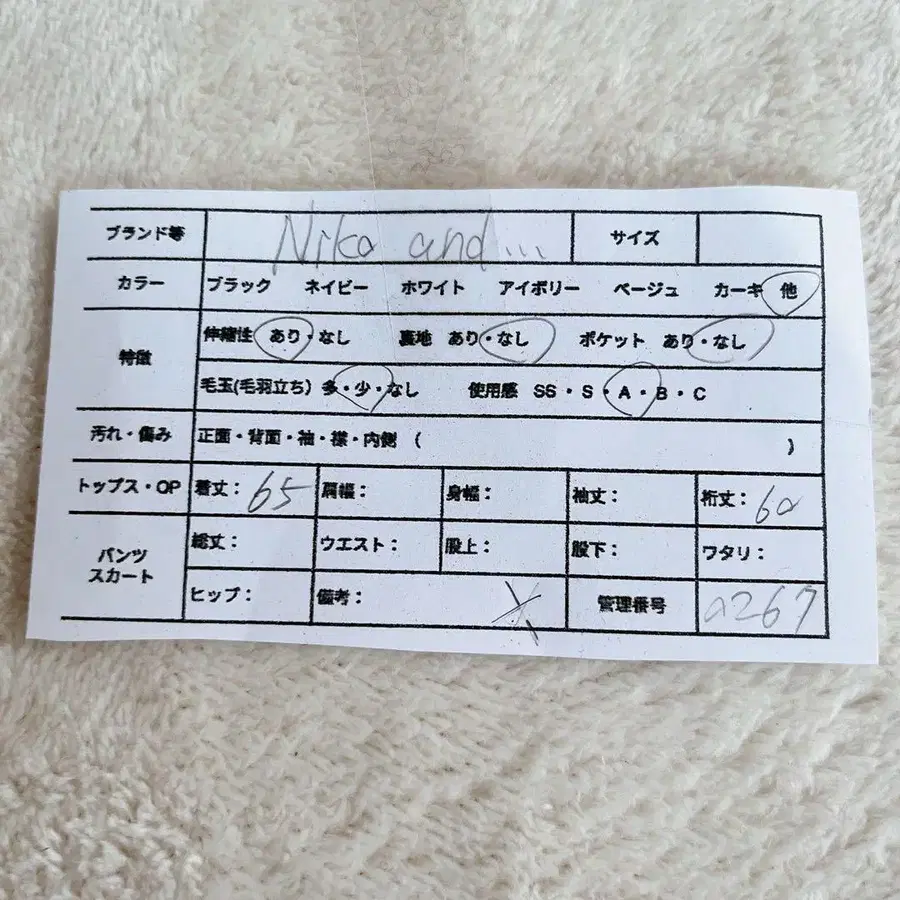 ブランド等 Niko and ... サイズ
カラー ブラック ネイビー ホワイト アイボリー ベージュ カーキ 他
特徴 伸縮性 あり・なし 裏地 あり・なし ポケット あり・なし
毛玉(毛羽立ち) 多・少・なし 使用感 SS・S・A・B・C
汚れ・傷み 正面・背面・袖・襟・内側 ( )
トップス・OP 着丈: 65 肩幅: 身幅: 袖丈: 裄丈: 60
パンツ スカート 総丈: ウエスト: 股上: 股下: ワタリ:
ヒップ: 備考: 管理番号 a267